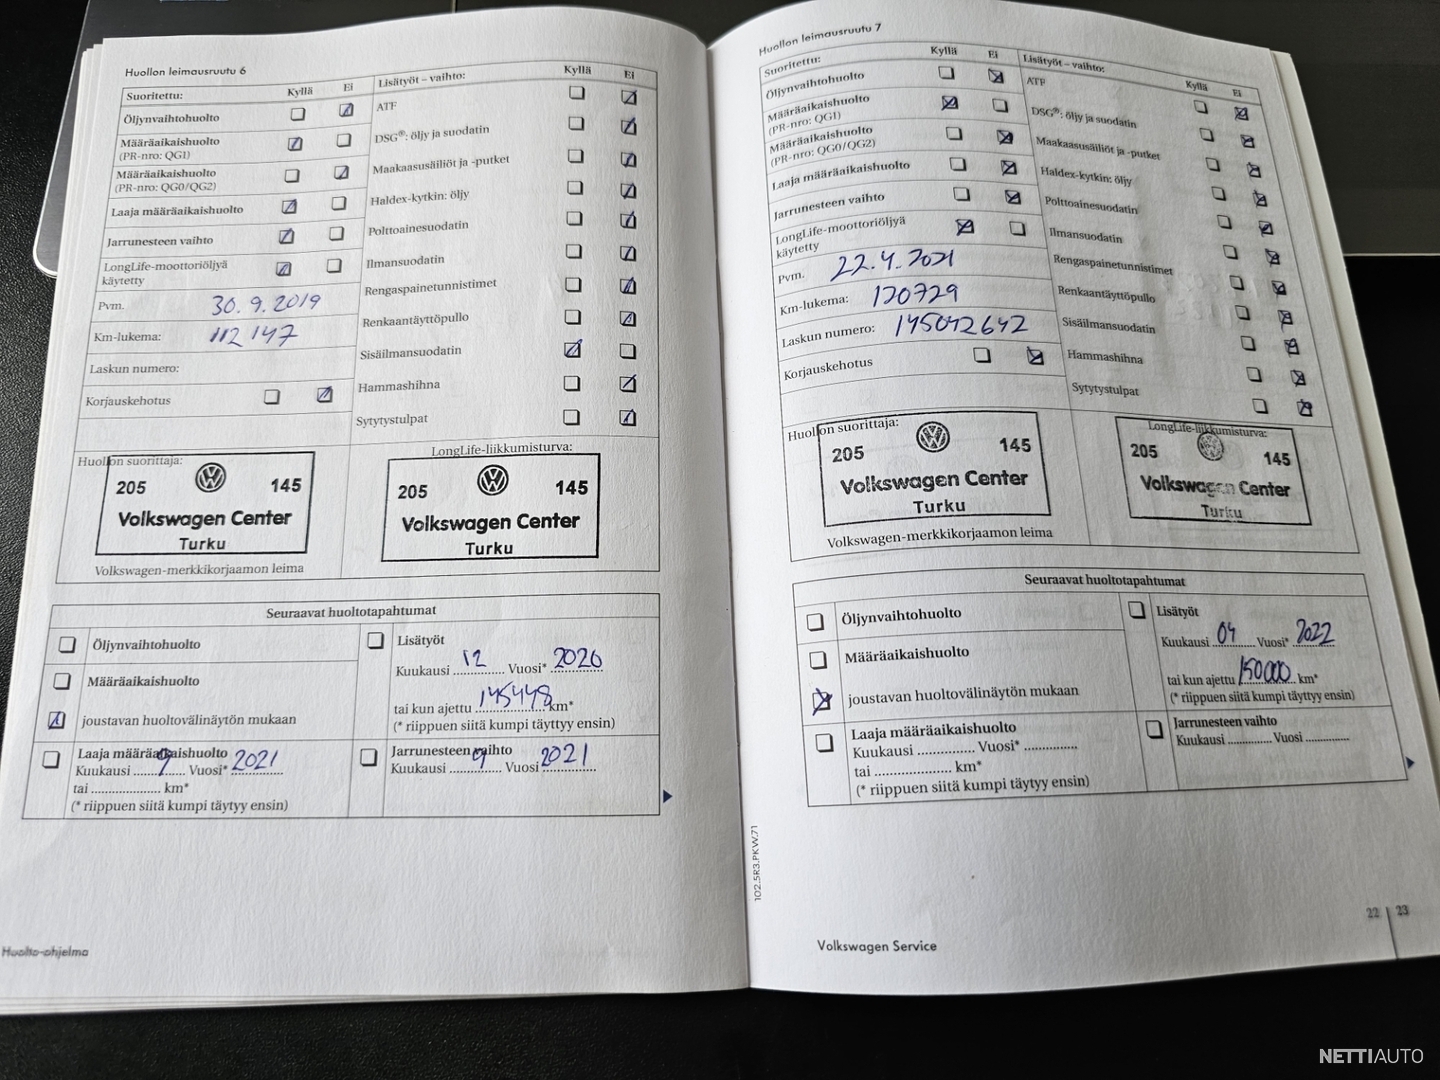 Huollon leimausruutu 6
Suoritettu: Kyllä Ei
Öljynvaihtohuolto
Määräaikaishuolto
(PR-nro: QG1)
Määräaikaishuolto
(PR-nro: QG0/QG2)
Laaja määräaikaishuolto
Jarrunesteen vaihto
LongLife-moottoriöljyä
käytetty
Pvm. 30.9.2019
Km-lukema: 112 147
Laskun numero:
Korjauskehotus
Lisätyöt – vaihto: Kyllä Ei
ATF
DSG®: öljy ja suodatin
Maakaasusäiliöt ja -putket
Haldex-kytkin: öljy
Polttoainesuodatin
Ilmansuodatin
Rengaspainetunnistimet
Renkaantäyttöpullo
Sisäilmansuodatin
Hammashihna
Sytytystulpat
Huollon suorittaja:
205 145
Volkswagen Center
Turku
Volkswagen-merkkikorjaamon leima
LongLife-liikkumisturva:
205 145
Volkswagen Center
Turku
Seuraavat huoltotapahtumat
Öljynvaihtohuolto
Määräaikaishuolto
joustavan huoltovälinäytön mukaan
Lisätyöt
Kuukausi 12 Vuosi* 2020
tai kun ajettu 145448 km*
(* riippuen siitä kumpi täyttyy ensin)
Laaja määräaikaishuolto
Kuukausi 9 Vuosi* 2021
tai .................... km*
(* riippuen siitä kumpi täytyy ensin)
Jarrunesteen vaihto
Kuukausi 9 Vuosi 2021
Huolto-ohjelma
Huollon leimausruutu 7
Suoritettu: Kyllä Ei
Öljynvaihtohuolto
Määräaikaishuolto
(PR-nro: QG1)
Määräaikaishuolto
(PR-nro: QG0/QG2)
Laaja määräaikaishuolto
Jarrunesteen vaihto
LongLife-moottoriöljyä
käytetty
Pvm. 22.4.2021
Km-lukema: 120729
Laskun numero: 145042642
Korjauskehotus
Lisätyöt – vaihto: Kyllä Ei
ATF
DSG®: öljy ja suodatin
Maakaasusäiliöt ja -putket
Haldex-kytkin: öljy
Polttoainesuodatin
Ilmansuodatin
Rengaspainetunnistimet
Renkaantäyttöpullo
Sisäilmansuodatin
Hammashihna
Sytytystulpat
Huollon suorittaja:
205 145
Volkswagen Center
Turku
Volkswagen-merkkikorjaamon leima
LongLife-liikkumisturva:
205 145
Volkswagen Center
Turku
Seuraavat huoltotapahtumat
Öljynvaihtohuolto
Määräaikaishuolto
joustavan huoltovälinäytön mukaan
Lisätyöt
Kuukausi 04 Vuosi* 2022
tai kun ajettu 150000 km*
(* riippuen siitä kumpi täyttyy ensin)
Laaja määräaikaishuolto
Kuukausi ............... Vuosi* ...............
tai .................... km*
(* riippuen siitä kumpi täytyy ensin)
Jarrunesteen vaihto
Kuukausi ............. Vuosi .............
102.5R3.PKW.71
Volkswagen Service
22 | 23
NETTIAUTO